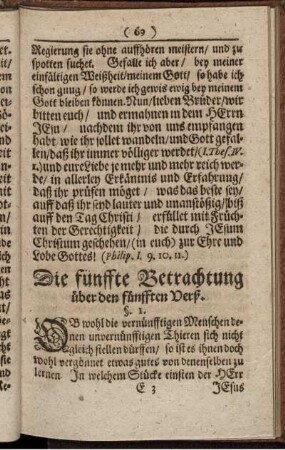 ( 69 )
Regierung sie ohne auffhören meistern/ und zu
spotten suchet. Gefalle ich aber / bey meiner
einfältigen Weißheit/ meinem Gott/ so habe ich
schon gnug / so werde ich gewis ewig bey meinem
Gott bleiben können. Nun/ lieben Brüder/ wir
bitten euch/ und ermahnen in dem HErrn
JEsu / nachdem ihr von uns empfangen
habt, wie ihr sollet wandeln/ und Gott gefal-
len/ daß ihr immer völliger werdet/ (1. Thes. IV.
1.) und eure Liebe je mehr und mehr reich wer-
de/ in allerley Erkäntnis und Erfahrung/
daß ihr prüfen möget / was das beste sey/
auff daß ihr seyd lauter und unanstößig/ biß
auff den Tag Christi / erfüllet mit Früch-
ten der Gerechtigkeit / die durch JEsum
Christum geschehen/ (in euch) zur Ehre und
Lobe Gottes! (Philip. I. 9. 10. 11.)
Die fünffte Betrachtung
über den fünfften Verß.
§. 1.
OB wohl die vernünfftigen Menschen de-
nen unvernünfftigen Thieren sich nicht
gleich stellen dürffen/ so ist es ihnen doch
wohl vergönnet etwas gutes von denenselben zu
lernen In welchem Stücke einsten der HErr
E 3 JEsus